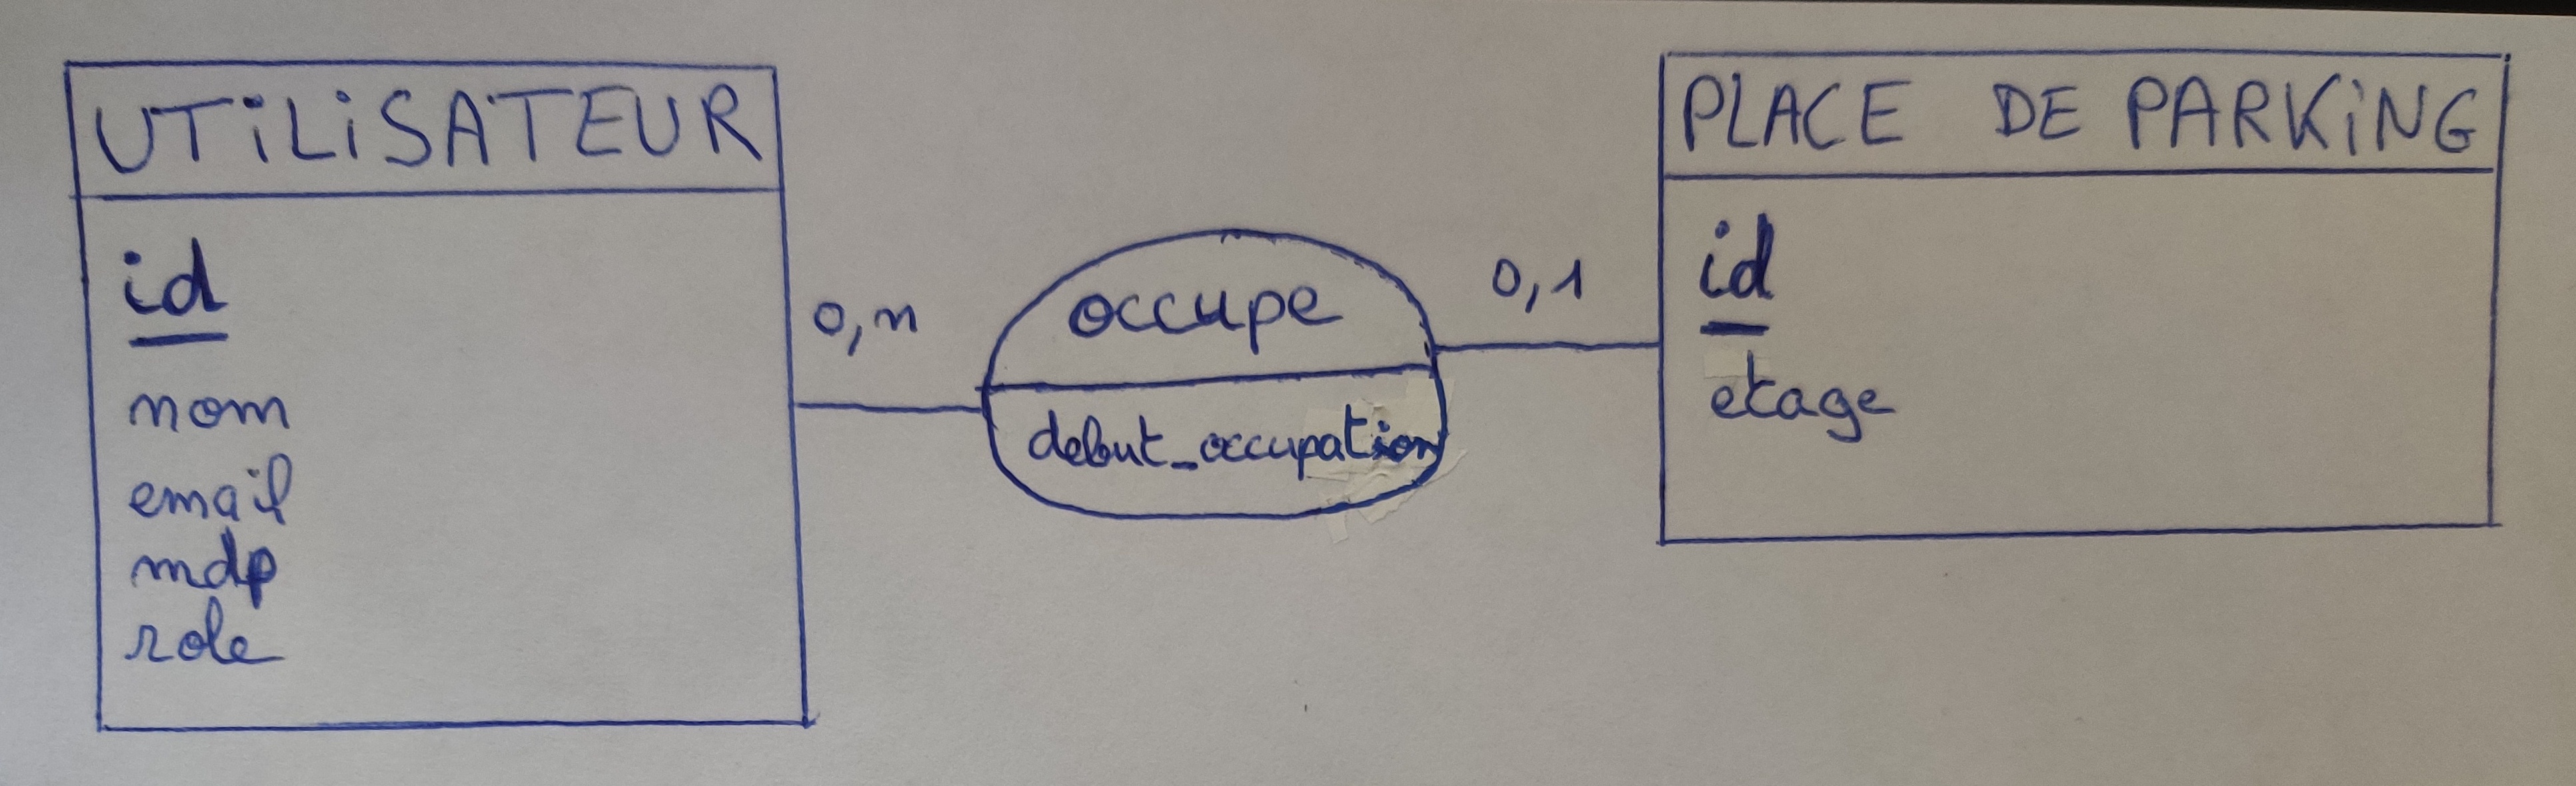 UTiLiSATEUR
id
nom
email
mdp
role
0,n
occupe
debut_occupation
0,1
PLACE DE PARKiNG
id
etage